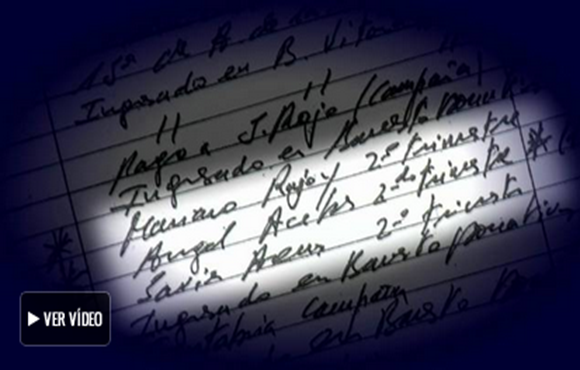 de
Ingresado en B. Vito
" "
Pago a J. Rojo (Campaña)
Ingresado en Banesto Donativ
Mariano Rajoy 2º trimestre
Angel Acebes 2do trimestre * (
Javier Arenas 2º trimestre
Ingresado en Banesto Donativos
Cantabria Campaña
en Banesto Do
VER VÍDEO